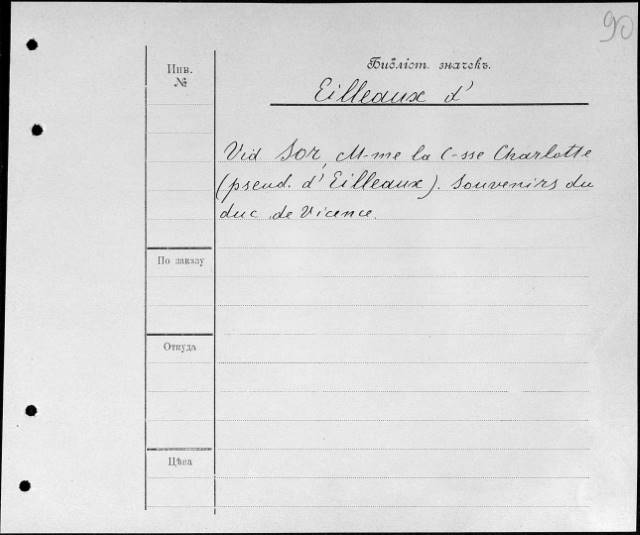 90
Инв.
№
Библіот. значекъ.
Eilleaux d'
Vid Sor, M-me la C-sse Charlotte
(pseud. d'Eilleaux). Souvenirs du
duc de Vicence.
По заказу
Откуда
Цѣна